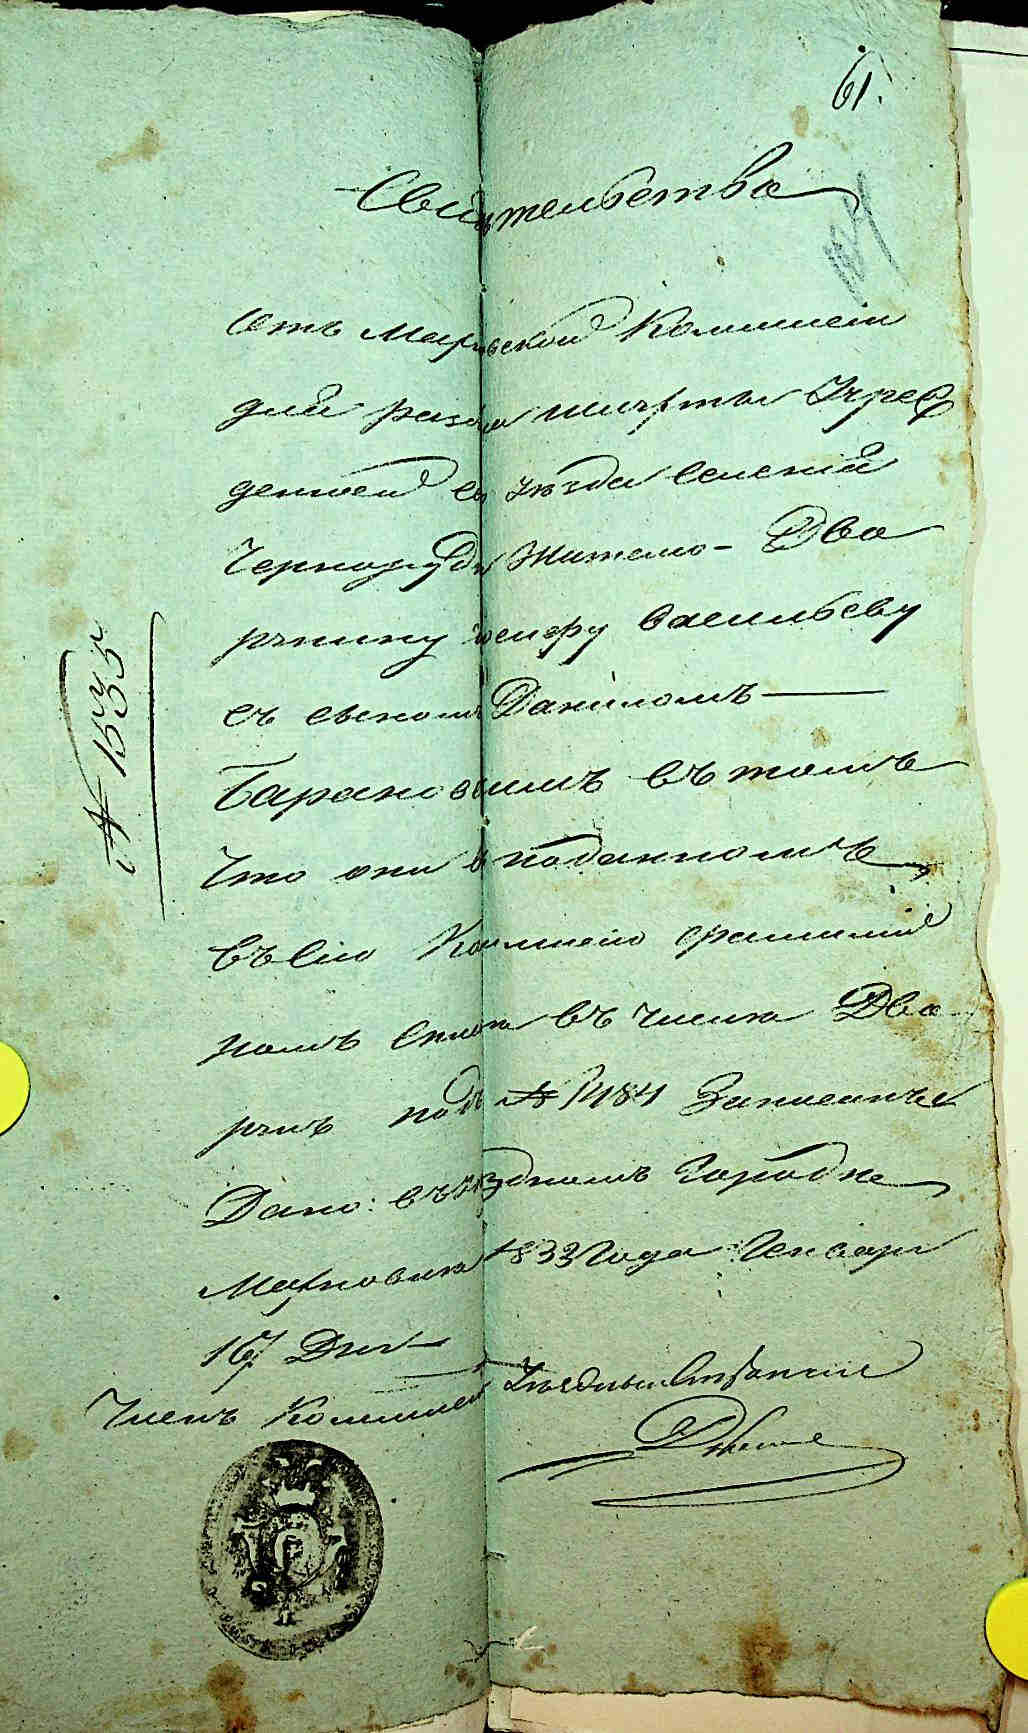 61.
Свидѣтельства
Отъ Махновской Коммисіи
для разбора шляхты Учреж
денной съ уѣзда Селенія
Чернорудки Жителю - Дво
рянину Іосифу Васильеву
съ сыномъ Даніиломъ
Барановскимъ въ томъ
Что они въ поданномъ
въ Сію Коммисію фамиліи
номъ Списке въ числѣ Дво
рянъ подъ № 1484 Записаны
Дано: въ уѣздномъ Городке
Махновки 1833 Года Генваря
167 Дня
Членъ Коммисіи Уѣздный
№ 1535